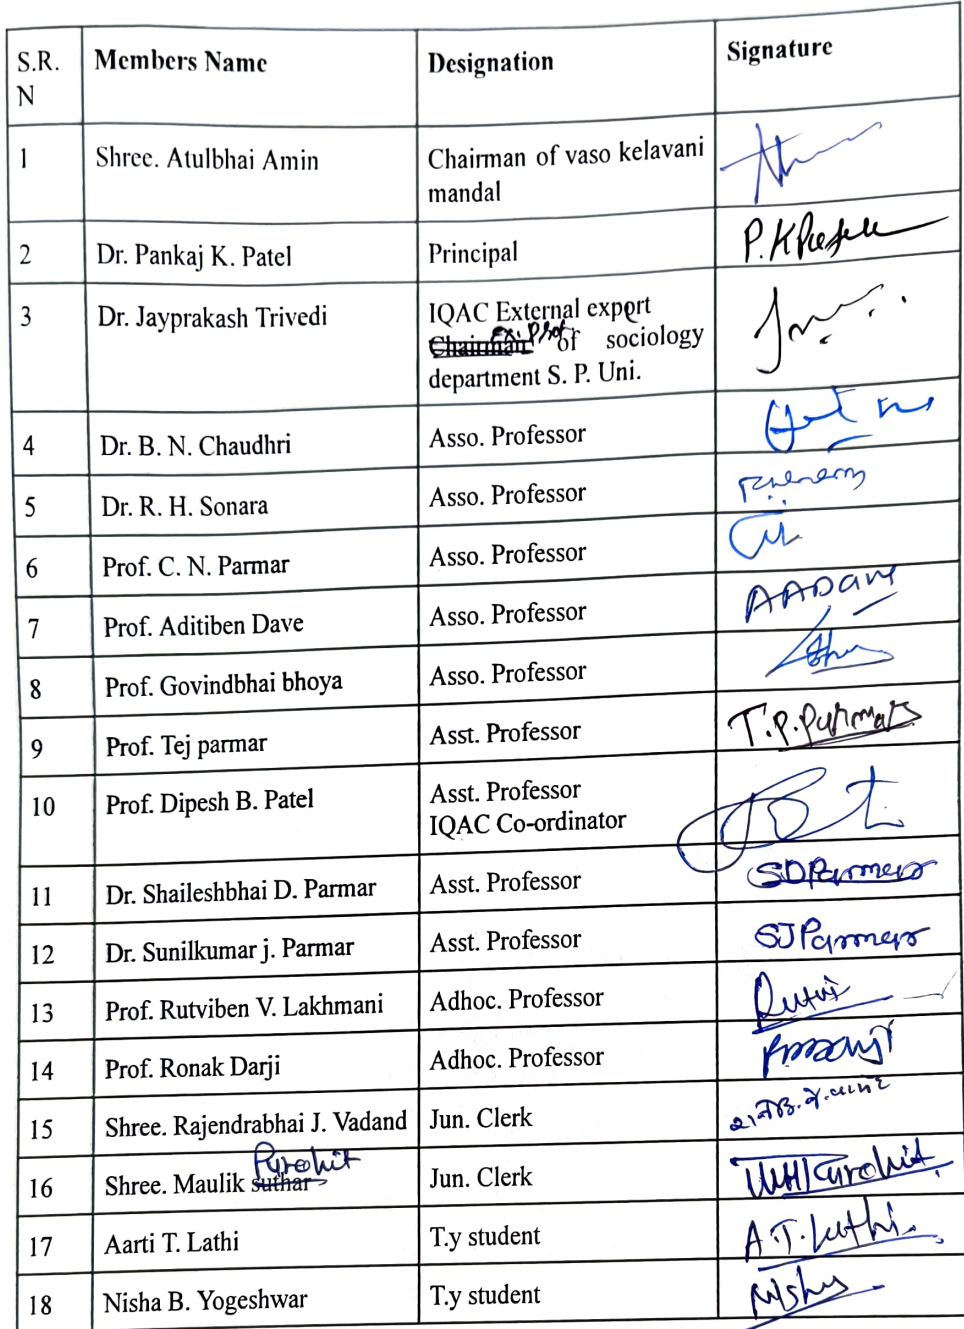 S.R. N Members Name Designation Signature
1 Shree. Atulbhai Amin Chairman of vaso kelavani
mandal
2 Dr. Pankaj K. Patel Principal P.K Patel
3 Dr. Jayprakash Trivedi IQAC External expert
Chairman Ex. Prof of sociology
department S. P. Uni.
4 Dr. B. N. Chaudhri Asso. Professor
5 Dr. R. H. Sonara Asso. Professor
6 Prof. C. N. Parmar Asso. Professor
7 Prof. Aditiben Dave Asso. Professor AADave
8 Prof. Govindbhai bhoya Asso. Professor
9 Prof. Tej parmar Asst. Professor T.P.Parmar
10 Prof. Dipesh B. Patel Asst. Professor
IQAC Co-ordinator
11 Dr. Shaileshbhai D. Parmar Asst. Professor SDParmar
12 Dr. Sunilkumar j. Parmar Asst. Professor SJParmar
13 Prof. Rutviben V. Lakhmani Adhoc. Professor Rutvi
14 Prof. Ronak Darji Adhoc. Professor
15 Shree. Rajendrabhai J. Vadand Jun. Clerk
16 Shree. Maulik suthar Purohit Jun. Clerk
17 Aarti T. Lathi T.y student A.T.Lathi.
18 Nisha B. Yogeshwar T.y student Nisha